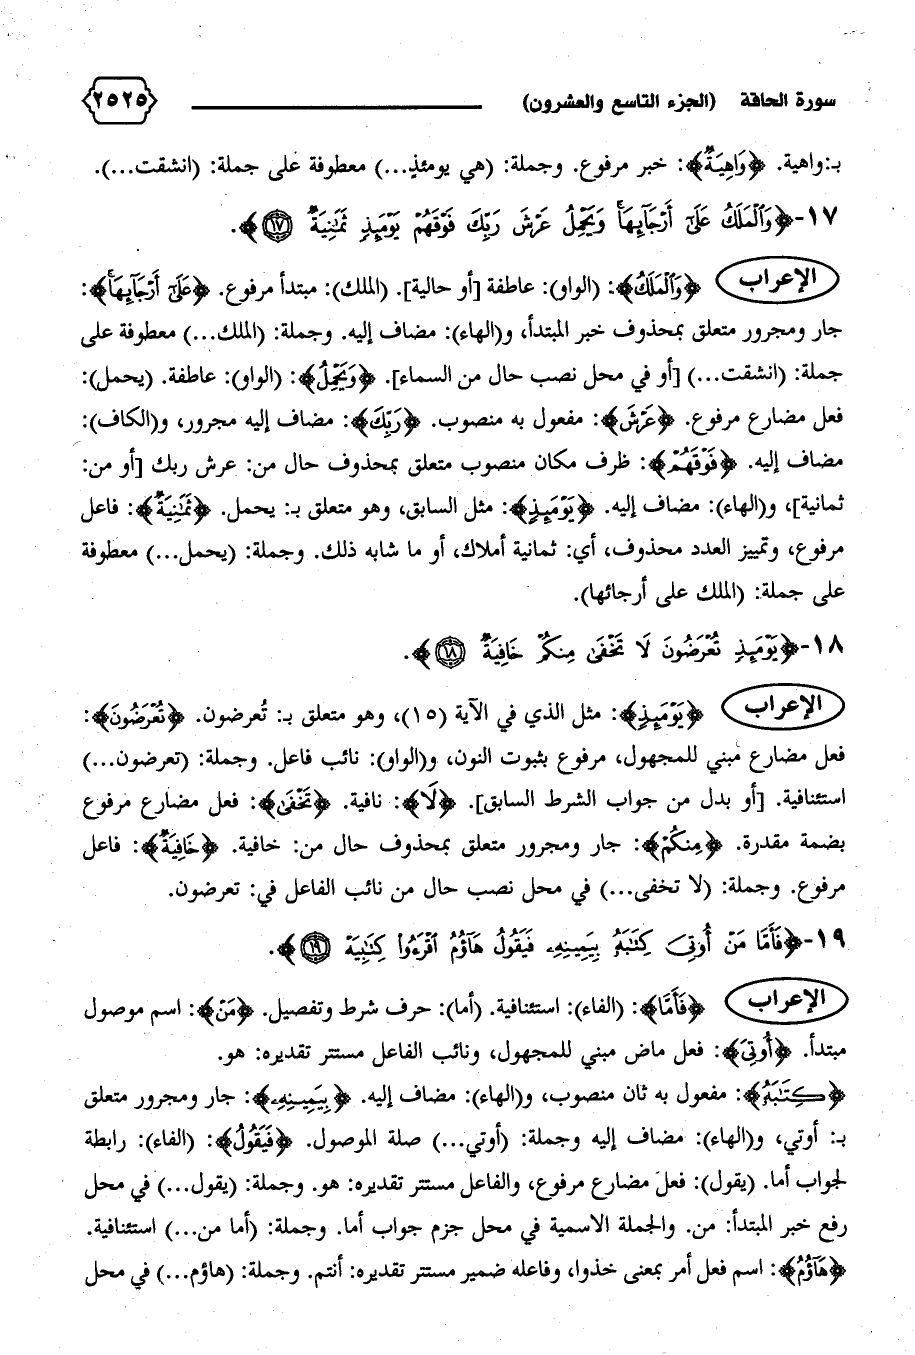 سورة الحاقة (الجزء التاسع والعشرون) ٢٥٢٥
بـ:واهية. ﴿وَاهِيَةٌ﴾: خبر مرفوع. وجملة: (هي يومئذٍ...) معطوفة على جملة: (انشقت...).
١٧-﴿وَٱلْمَلَكُ عَلَىٰٓ أَرْجَآئِهَا ۚ وَيَحْمِلُ عَرْشَ رَبِّكَ فَوْقَهُمْ يَوْمَئِذٍ ثَمَٰنِيَةٌ ١٧﴾.
الإعراب ﴿وَٱلْمَلَكُ﴾: (الواو): عاطفة [أو حالية]. (الملك): مبتدأ مرفوع. ﴿عَلَىٰٓ أَرْجَآئِهَا ۚ﴾:
جار ومجرور متعلق بمحذوف خبر المبتدأ، و(الهاء): مضاف إليه. وجملة: (الملك...) معطوفة على
جملة: (انشقت...) [أو في محل نصب حال من السماء]. ﴿وَيَحْمِلُ﴾: (الواو): عاطفة. (يحمل):
فعل مضارع مرفوع. ﴿عَرْشَ﴾: مفعول به منصوب. ﴿رَبِّكَ﴾: مضاف إليه مجرور، و(الكاف):
مضاف إليه. ﴿فَوْقَهُمْ﴾: ظرف مكان منصوب متعلق بمحذوف حال من: عرش ربك [أو من:
ثمانية]، و(الهاء): مضاف إليه. ﴿يَوْمَئِذٍ﴾: مثل السابق، وهو متعلق بـ: يحمل. ﴿ثَمَٰنِيَةٌ﴾: فاعل
مرفوع، وتمييز العدد محذوف، أي: ثمانية أملاك، أو ما شابه ذلك. وجملة: (يحمل...) معطوفة
على جملة: (الملك على أرجائها).
١٨-﴿يَوْمَئِذٍ تُعْرَضُونَ لَا تَخْفَىٰ مِنكُمْ خَافِيَةٌ ١٨﴾.
الإعراب ﴿يَوْمَئِذٍ﴾: مثل الذي في الآية (١٥)، وهو متعلق بـ: تُعرضون. ﴿تُعْرَضُونَ﴾:
فعل مضارع مبني للمجهول، مرفوع بثبوت النون، و(الواو): نائب فاعل. وجملة: (تعرضون...)
استئنافية. [أو بدل من جواب الشرط السابق]. ﴿لَا﴾: نافية. ﴿تَخْفَىٰ﴾: فعل مضارع مرفوع
بضمة مقدرة. ﴿مِنكُمْ﴾: جار ومجرور متعلق بمحذوف حال من: خافية. ﴿خَافِيَةٌ﴾: فاعل
مرفوع. وجملة: (لا تخفى...) في محل نصب حال من نائب الفاعل في: تعرضون.
١٩-﴿فَأَمَّا مَنْ أُوتِىَ كِتَٰبَهُۥ بِيَمِينِهِۦ فَيَقُولُ هَآؤُمُ ٱقْرَءُوا۟ كِتَٰبِيَهْ ١٩﴾.
الإعراب ﴿فَأَمَّا﴾: (الفاء): استئنافية. (أما): حرف شرط وتفصيل. ﴿مَنْ﴾: اسم موصول
مبتدأ. ﴿أُوتِىَ﴾: فعل ماض مبني للمجهول، ونائب الفاعل مستتر تقديره: هو.
﴿كِتَٰبَهُۥ﴾: مفعول به ثان منصوب، و(الهاء): مضاف إليه. ﴿بِيَمِينِهِۦ﴾: جار ومجرور متعلق
بـ: أوتي، و(الهاء): مضاف إليه وجملة: (أوتي...) صلة الموصول. ﴿فَيَقُولُ﴾: (الفاء): رابطة
لجواب أما. (يقول): فعل مضارع مرفوع، والفاعل مستتر تقديره: هو. وجملة: (يقول...) في محل
رفع خبر المبتدأ: من. والجملة الاسمية في محل جزم جواب أما. وجملة: (أما من...) استئنافية.
﴿هَآؤُمُ﴾: اسم فعل أمر بمعنى خذوا، وفاعله ضمير مستتر تقديره: أنتم. وجملة: (هاؤم...) في محل